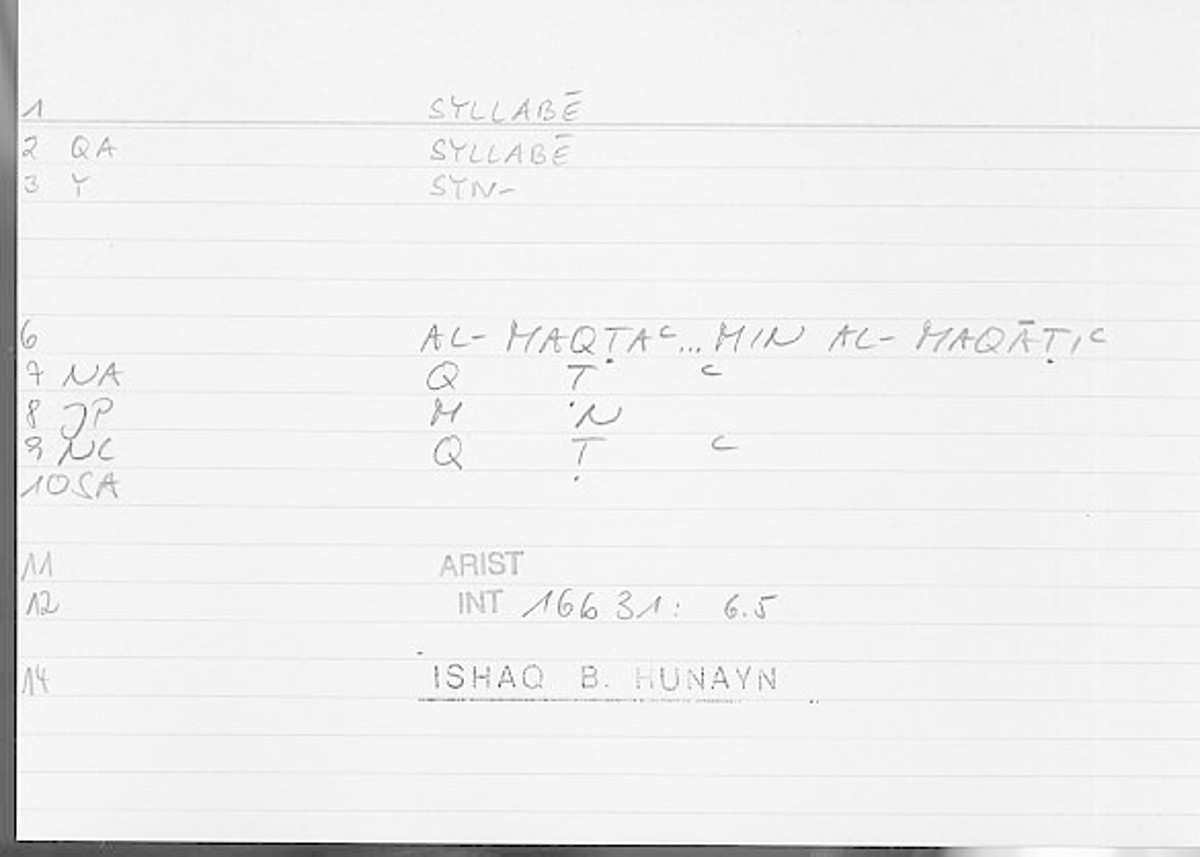 1 SYLLABĒ
2 QA SYLLABĒ
3 Y SYN-
6 AL- MAQṬAᶜ...MIN AL- MAQĀṬIᶜ
7 NA Q Ṭ ᶜ
8 JP M N
9 NC Q Ṭ ᶜ
10 SA
11 ARIST
12 INT 16631: 6.5
14 ISHAQ B. HUNAYN